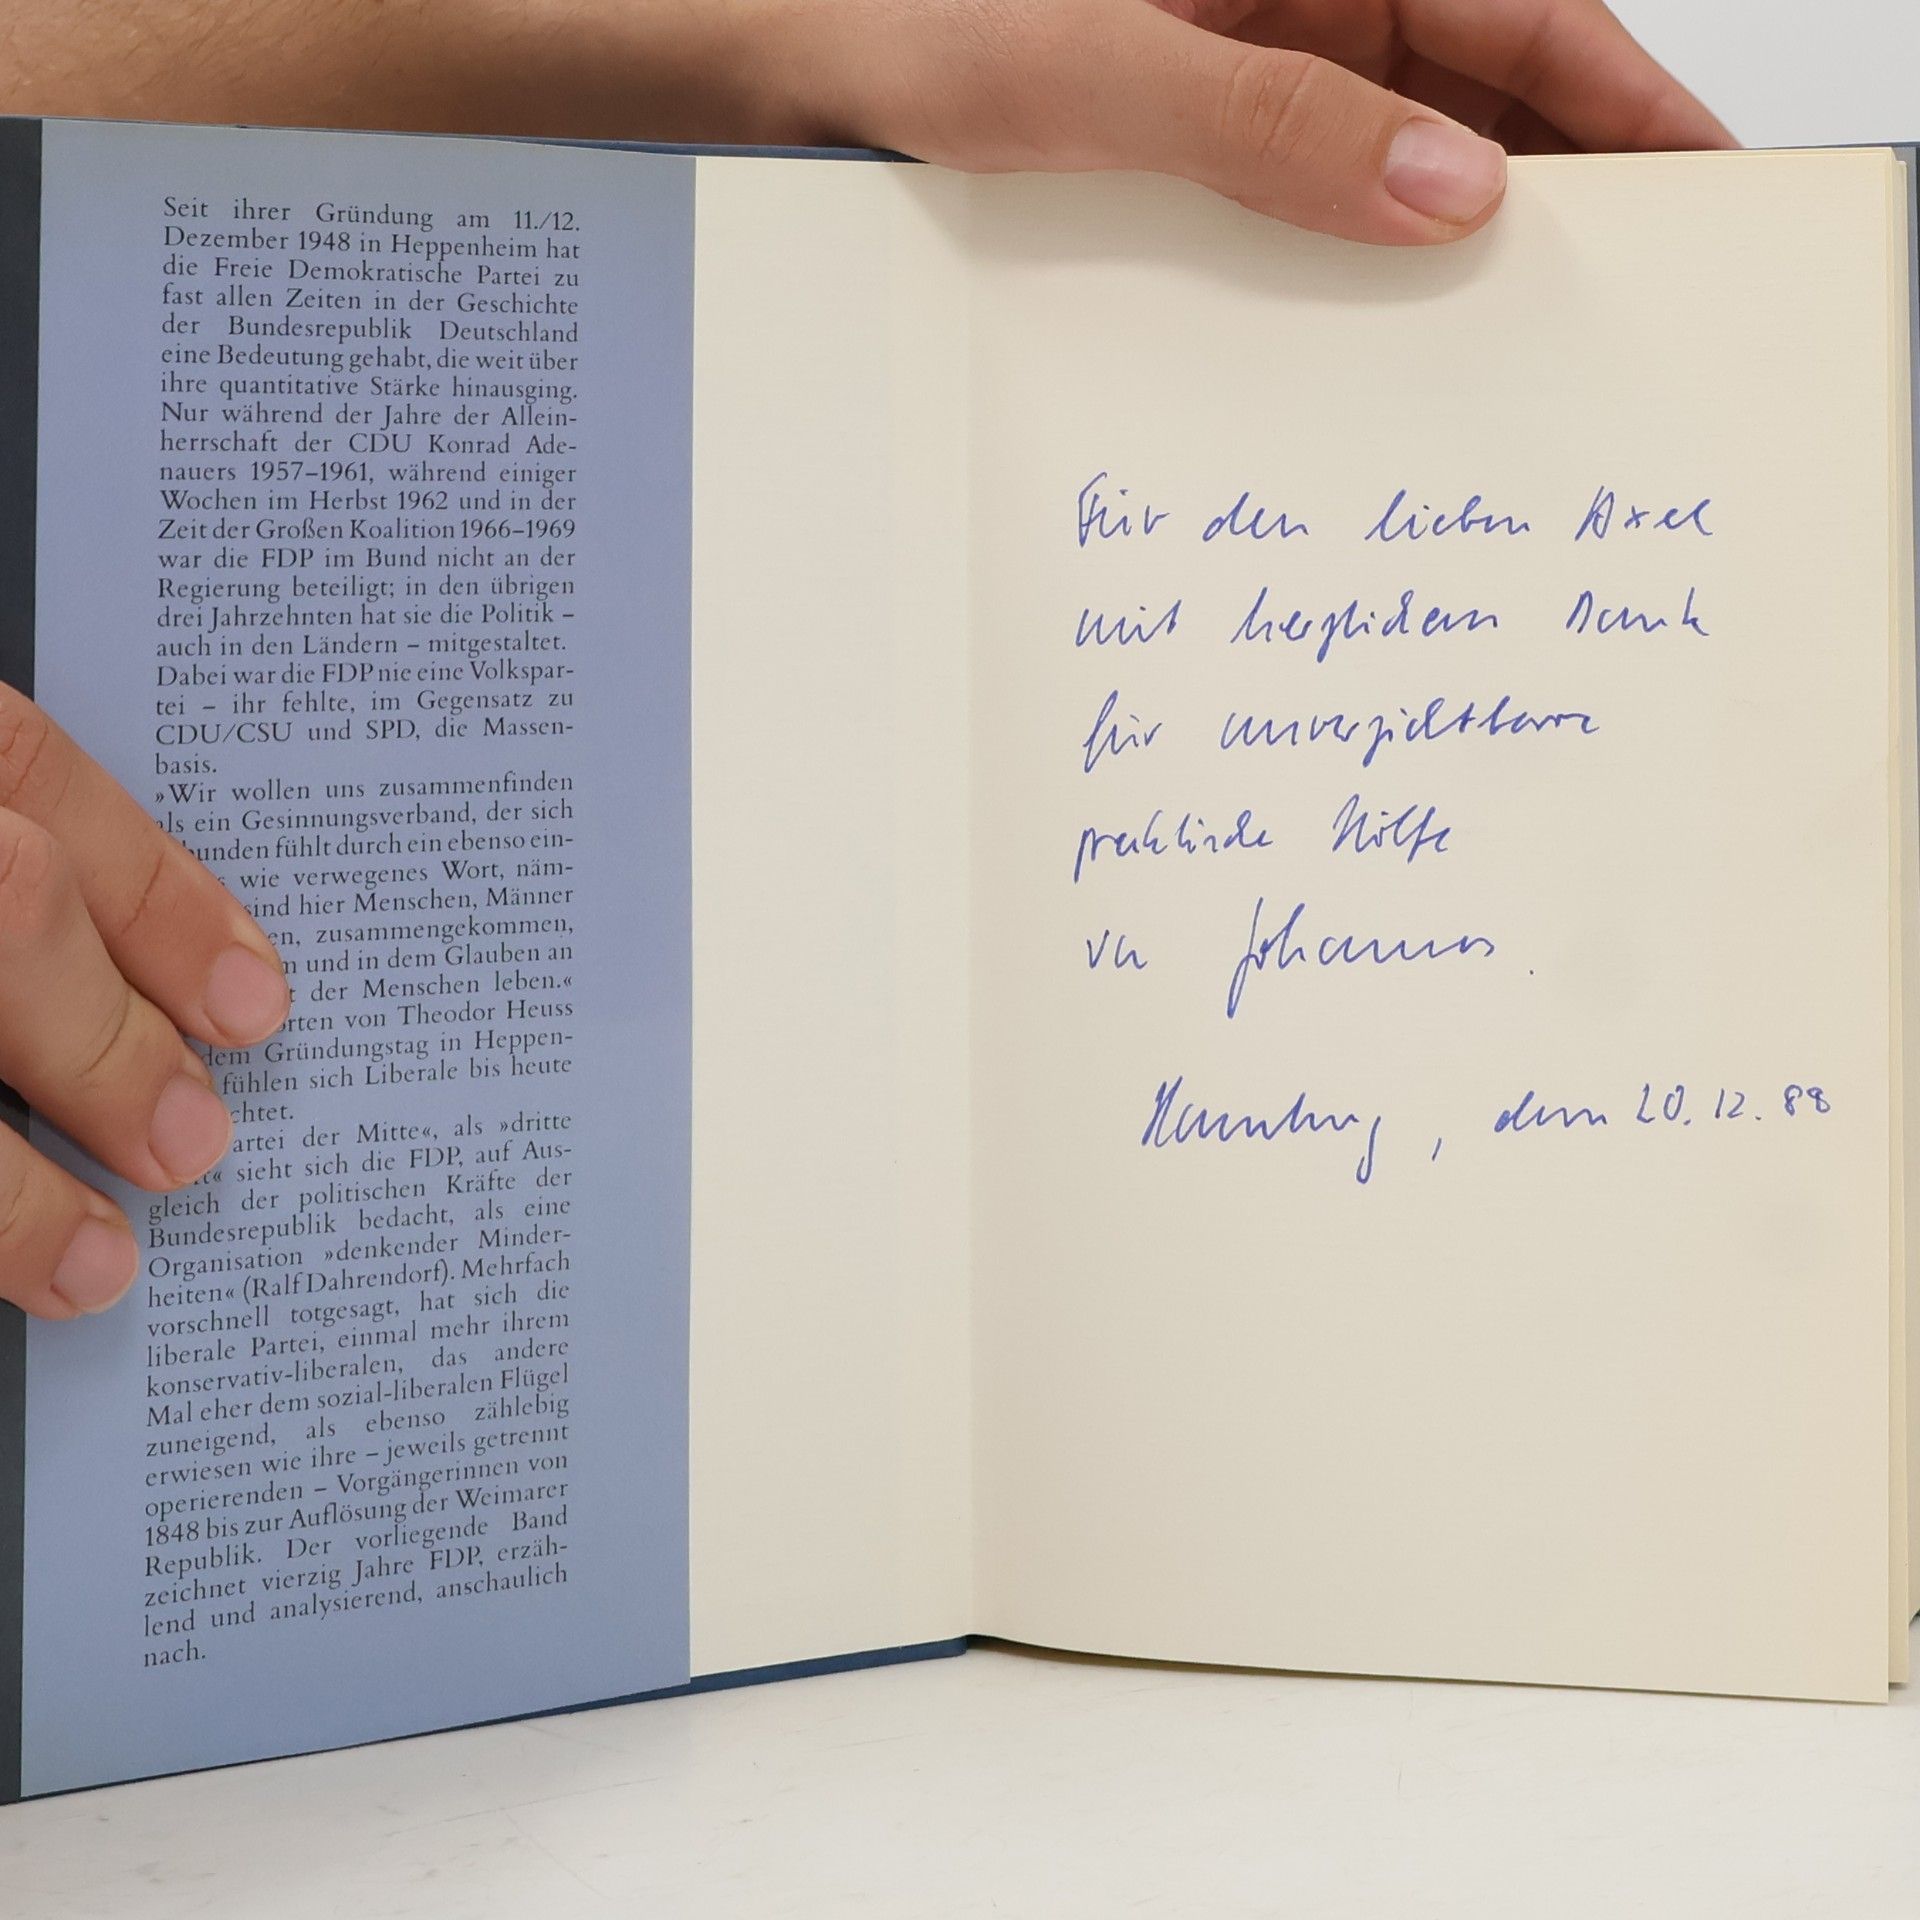 Seit ihrer Gründung am 11./12.
Dezember 1948 in Heppenheim hat
die Freie Demokratische Partei zu
fast allen Zeiten in der Geschichte
der Bundesrepublik Deutschland
eine Bedeutung gehabt, die weit über
ihre quantitative Stärke hinausging.
Nur während der Jahre der Allein-
herrschaft der CDU Konrad Ade-
nauers 1957–1961, während einiger
Wochen im Herbst 1962 und in der
Zeit der Großen Koalition 1966–1969
war die FDP im Bund nicht an der
Regierung beteiligt; in den übrigen
drei Jahrzehnten hat sie die Politik –
auch in den Ländern – mitgestaltet.
Dabei war die FDP nie eine Volkspar-
tei – ihr fehlte, im Gegensatz zu
CDU/CSU und SPD, die Massen-
basis.
»Wir wollen uns zusammenfinden
als ein Gesinnungsverband, der sich
unden fühlt durch ein ebenso ein-
wie verwegenes Wort, näm-
sind hier Menschen, Männer
en, zusammengekommen,
und in dem Glauben an
der Menschen leben.«
orten von Theodor Heuss
dem Gründungstag in Heppen-
fühlen sich Liberale bis heute
chtet.
artei der Mitte«, als »dritte
sieht sich die FDP, auf Aus-
gleich der politischen Kräfte der
Bundesrepublik bedacht, als eine
Organisation »denkender Minder-
heiten« (Ralf Dahrendorf). Mehrfach
vorschnell totgesagt, hat sich die
liberale Partei, einmal mehr ihrem
konservativ-liberalen, das andere
Mal eher dem sozial-liberalen Flügel
zuneigend, als ebenso zählebig
erwiesen wie ihre – jeweils getrennt
operierenden – Vorgängerinnen von
1848 bis zur Auflösung der Weimarer
Republik. Der vorliegende Band
zeichnet vierzig Jahre FDP, erzäh-
lend und analysierend, anschaulich
nach.
Für den lieben Axel
mit herzlichem Dank
für unverzichtbare
praktische Hilfe
von Johannes.
Hamburg, dem 20.12.88